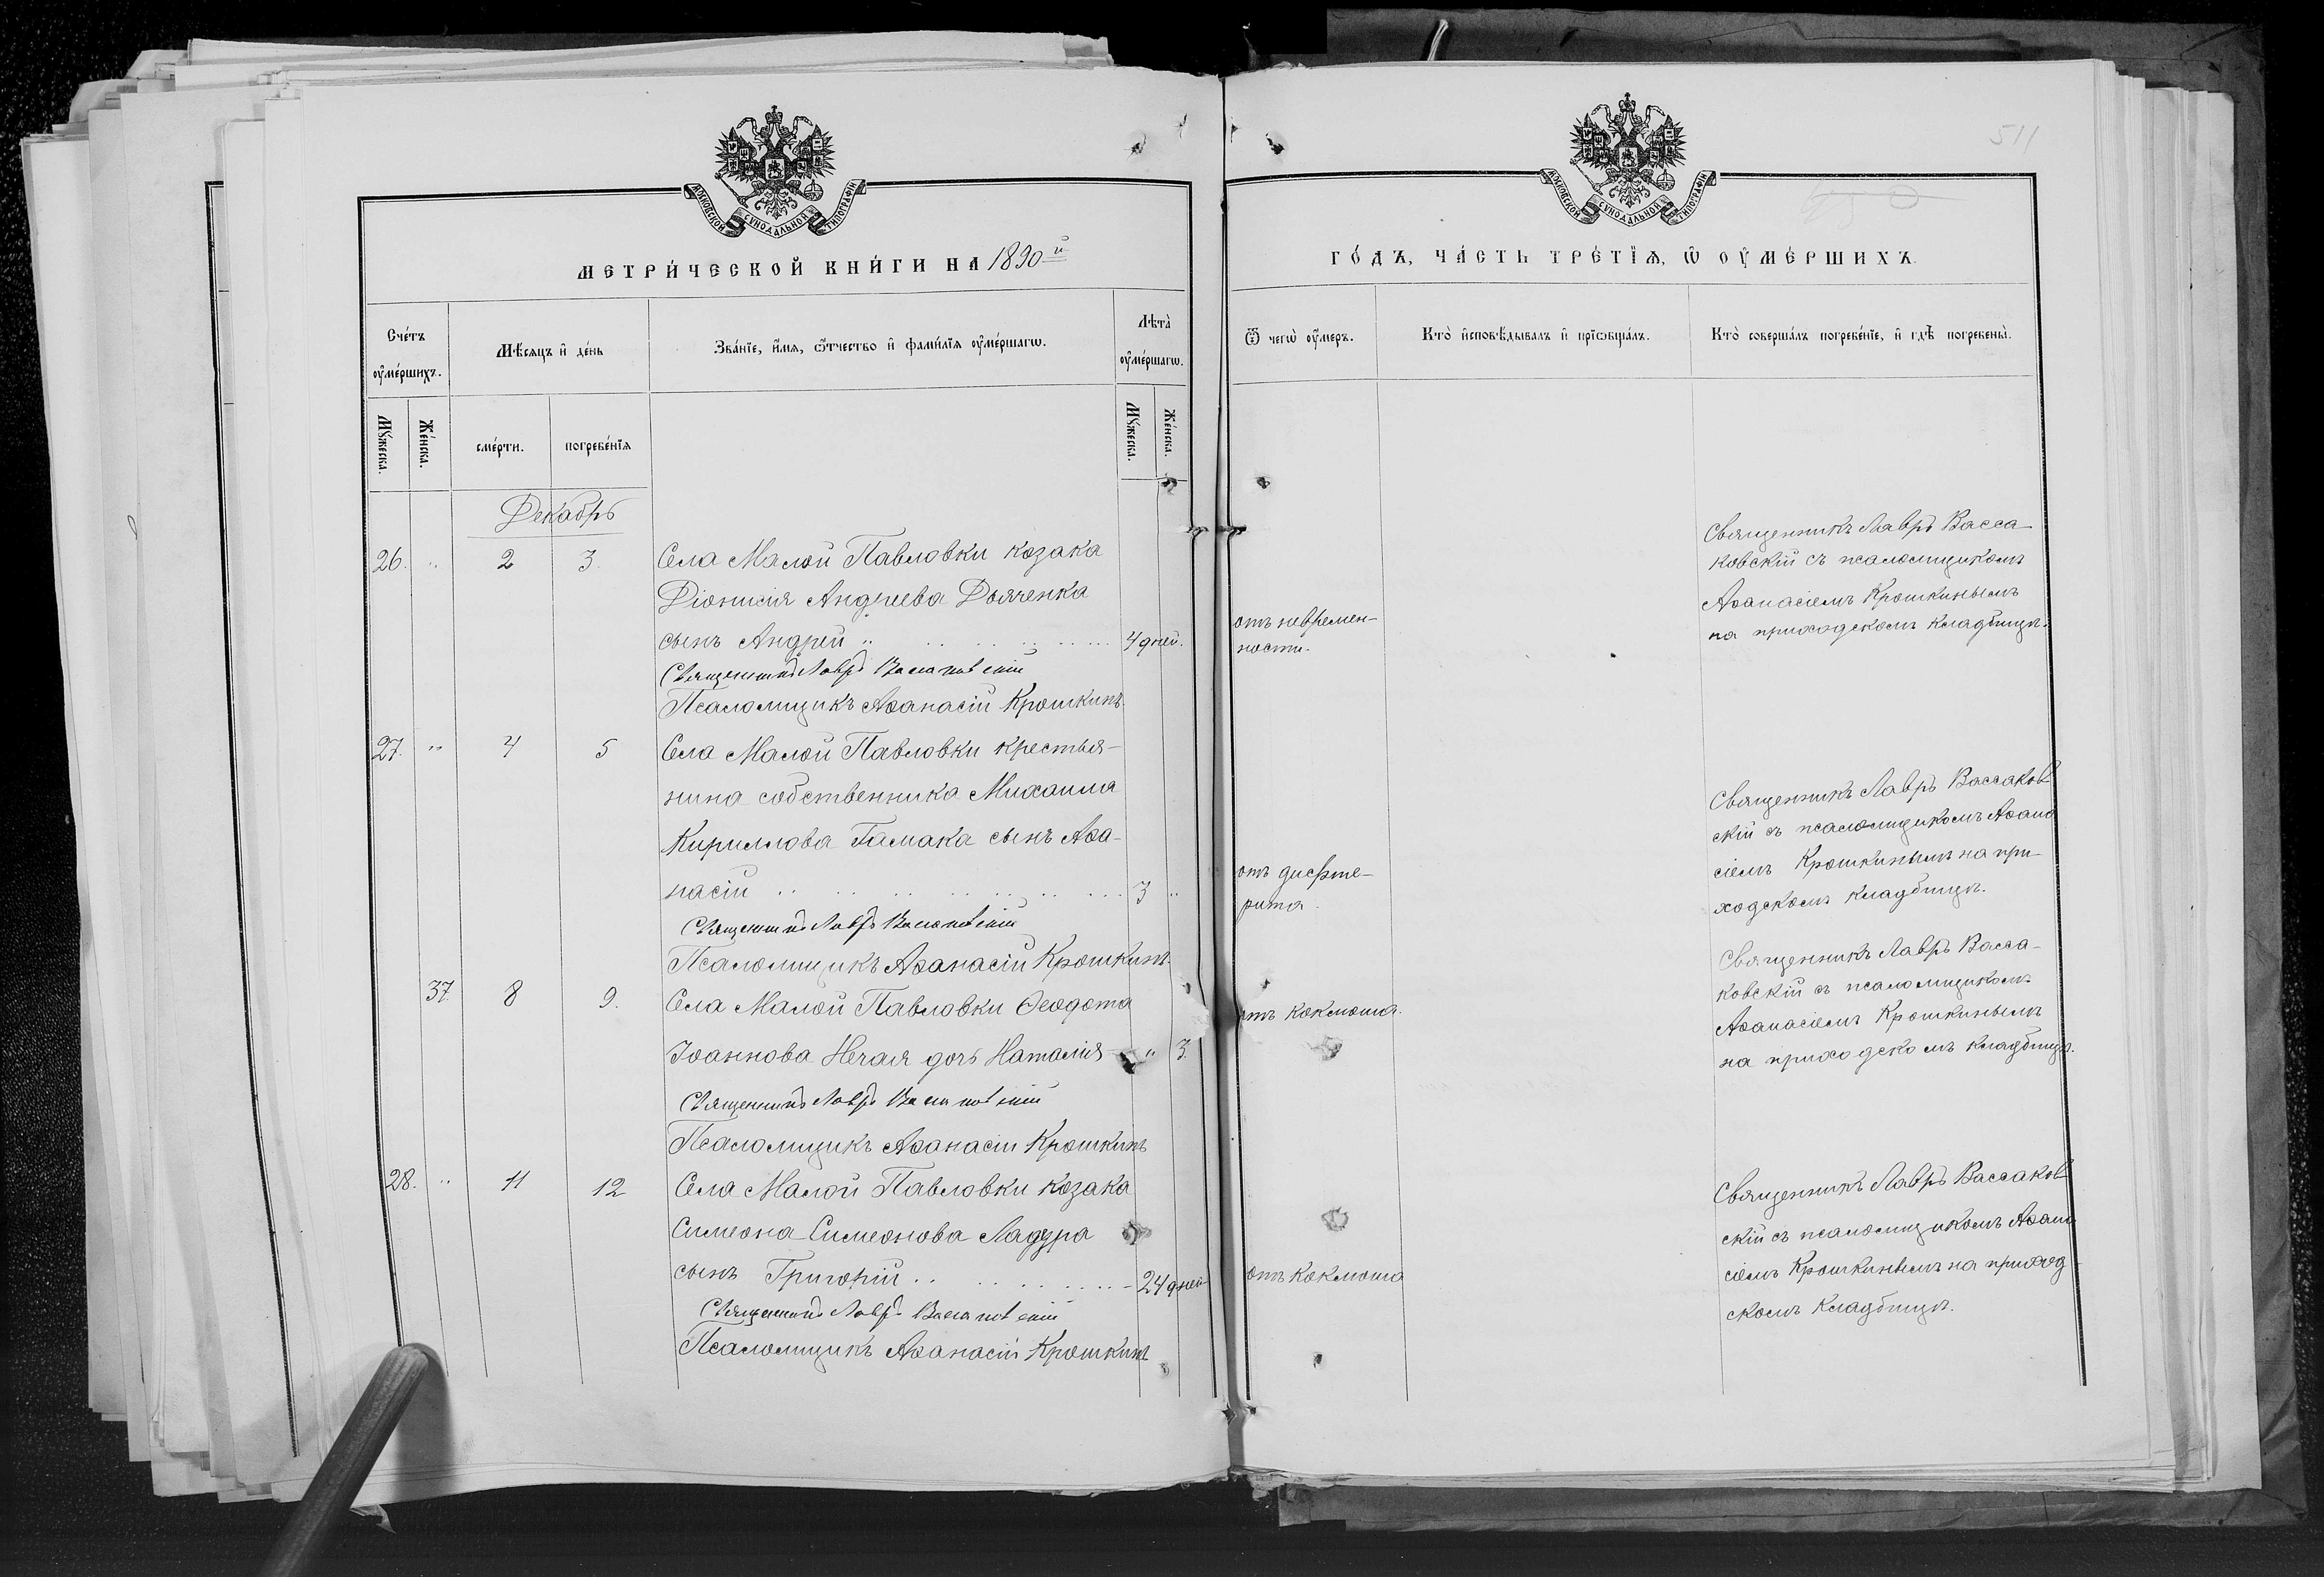 МОСКОВСКОЙ СУНОДАЛЬНОЙ ТИПОГРАФІИ
МЕТРИ́ЧЕСКОЙ КНИ́ГИ НА 1890й
Сче́тъ ᲂу҆ме́ршихъ.
Мѣ́сяцъ и҆ де́нь
Зва́нїе, и҆́мѧ, ѻ҆́тчество и҆ фами́лїѧ ᲂу҆ме́ршагѡ.
Лѣта̀ ᲂу҆ме́ршагѡ.
Мꙋ́жеска.
Же́нска.
сме́рти.
погребе́нїѧ
Мꙋ́жеска.
Же́нска.
Декабрь
26. " 2 3. Села Малой Павловки козака
Діонисія Андреева Дьяченка
сынъ Андрей " 4 дней.
Священникъ Лавръ Вассаковскій
Псаломщикъ Аѳанасій Крошкинъ.
27. " 4 5 Села Малой Павловки крестья-
нина собственника Михаила
Кириллова Гамака сынъ Аѳа-
насій 3 "
Священникъ Лавръ Вассаковскій
Псаломщикъ Аѳанасій Крошкинъ.
37. 8 9. Села Малой Павловки Ѳеодота
Іоаннова Нечая дочь Наталія " 3.
Священникъ Лавръ Вассаковскій
Псаломщикъ Аѳанасій Крошкинъ
28. " 11 12 Села Малой Павловки козака
Симеона Симеонова Ладура
сынъ Григорій 24 дней
Священникъ Лавръ Вассаковскій
Псаломщикъ Аѳанасій Крошкинъ
511
МОСКОВСКОЙ СУНОДАЛЬНОЙ ТИПОГРАФІИ
ГО́ДЪ, ЧА́СТЬ ТРЕ́ТЇѦ, Ѡ҆ ОУ҆МЕ́РШИХЪ
Ѿ чегѡ̀ ᲂу҆́меръ.
Кто̀ и҆сповѣ́дывалъ и҆ прїѡбща́лъ.
Кто̀ соверша́лъ погребе́нїе, и҆ гдѣ̀ погребены̀.
отъ невремен-
ности.
Священникъ Лавръ Васса-
ковскій съ псаломщикомъ
Аѳанасіемъ Крошкинымъ
на приходскомъ кладбищѣ.
отъ дифте-
рита.
Священникъ Лавръ Вассаков-
скій съ псаломщикомъ Аѳана
сіемъ Крошкинымъ на при-
ходскомъ кладбищѣ.
отъ коклюша.
Священникъ Лавръ Васса-
ковскій съ псаломщикомъ
Аѳанасіемъ Крошкинымъ
на приходскомъ кладбищѣ.
отъ коклюша
Священникъ Лавръ Вассаков-
скій съ псаломщикомъ Аѳана
сіемъ Крошкинымъ на приход
скомъ кладбищѣ.